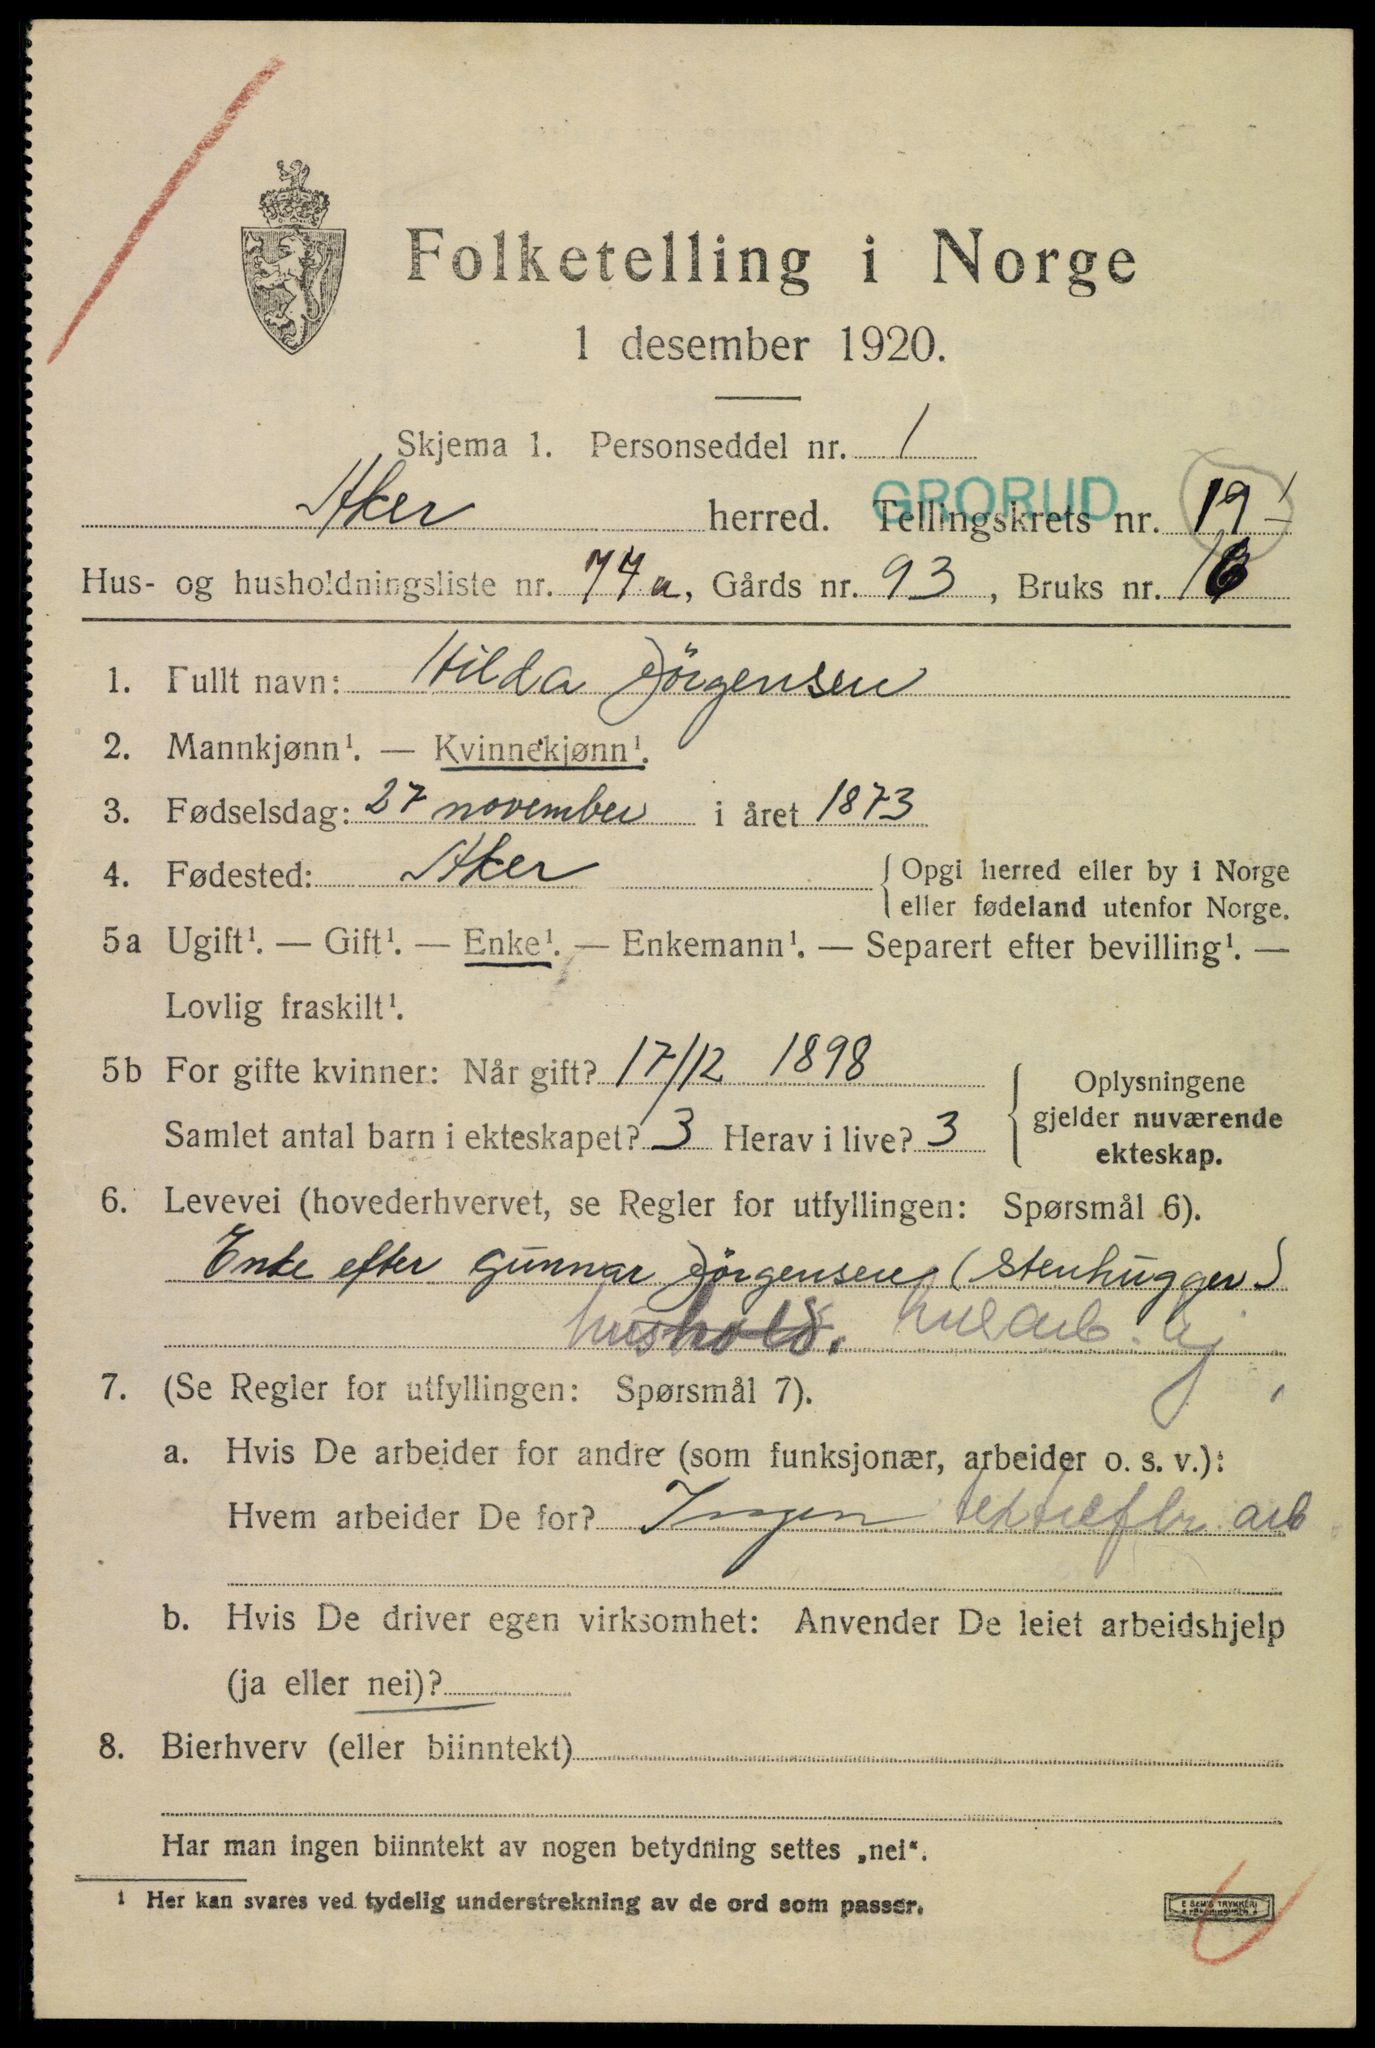 Folketelling i Norge
1 desember 1920.
Skjema 1. Personseddel nr. 1
GRORUD
Aker herred. Tellingskrets nr. 19
Hus- og husholdningsliste nr. 74a, Gårds nr. 93, Bruks nr.
1. Fullt navn: Hilda Jörgensen
2. Mannkjønn¹. — Kvinnekjønn¹.
3. Fødselsdag: 27 november i året 1873
4. Fødested: Aker { Opgi herred eller by i Norge
eller fødeland utenfor Norge.
5a Ugift¹. — Gift¹. — Enke¹. — Enkemann¹. — Separert efter bevilling¹. —
Lovlig fraskilt¹.
5b For gifte kvinner: Når gift? 17/12 1898
Samlet antal barn i ekteskapet? 3 Herav i live? 3
{ Oplysningene
gjelder nuværende
ekteskap.
6. Levevei (hovederhvervet, se Regler for utfyllingen: Spørsmål 6).
Enke efter Gunnar Jörgensen (Stenhugger)
hushold.
7. (Se Regler for utfyllingen: Spørsmål 7).
a. Hvis De arbeider for andre (som funksjonær, arbeider o. s. v.):
Hvem arbeider De for? Ingen arb
b. Hvis De driver egen virksomhet: Anvender De leiet arbeidshjelp
(ja eller nei)?
8. Bierhverv (eller biinntekt)
Har man ingen biinntekt av nogen betydning settes „nei“.
¹ Her kan svares ved tydelig understrekning av de ord som passer.